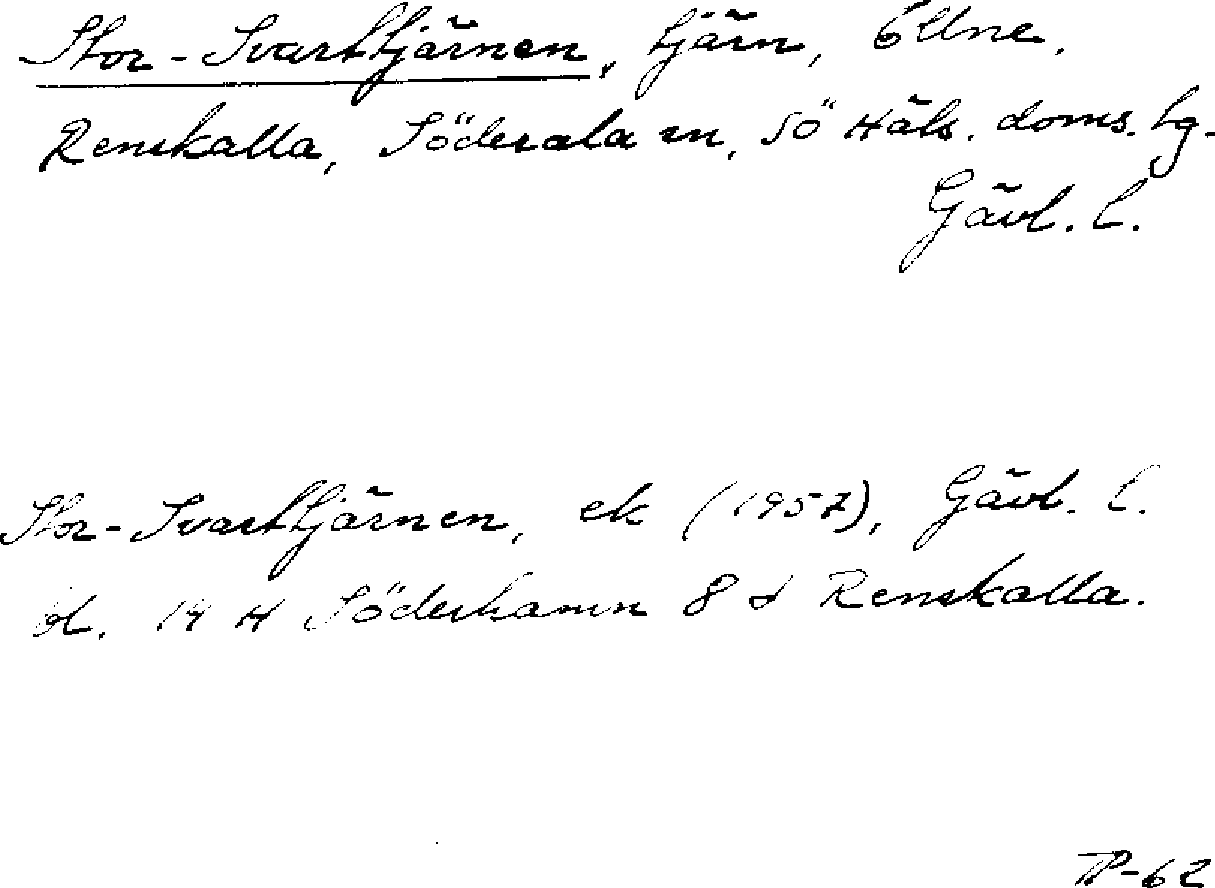 Stor-Svarttjärnen, tjärn, Ö Une.
Renskalla, Söderala sn, Sö Häls. doms. tg.
Gävl. l.
Stor-Svarttjärnen, ek (1957), Gävl. l.
bl. 14 H Söderhamn 8 d Renskalla.
TP-62